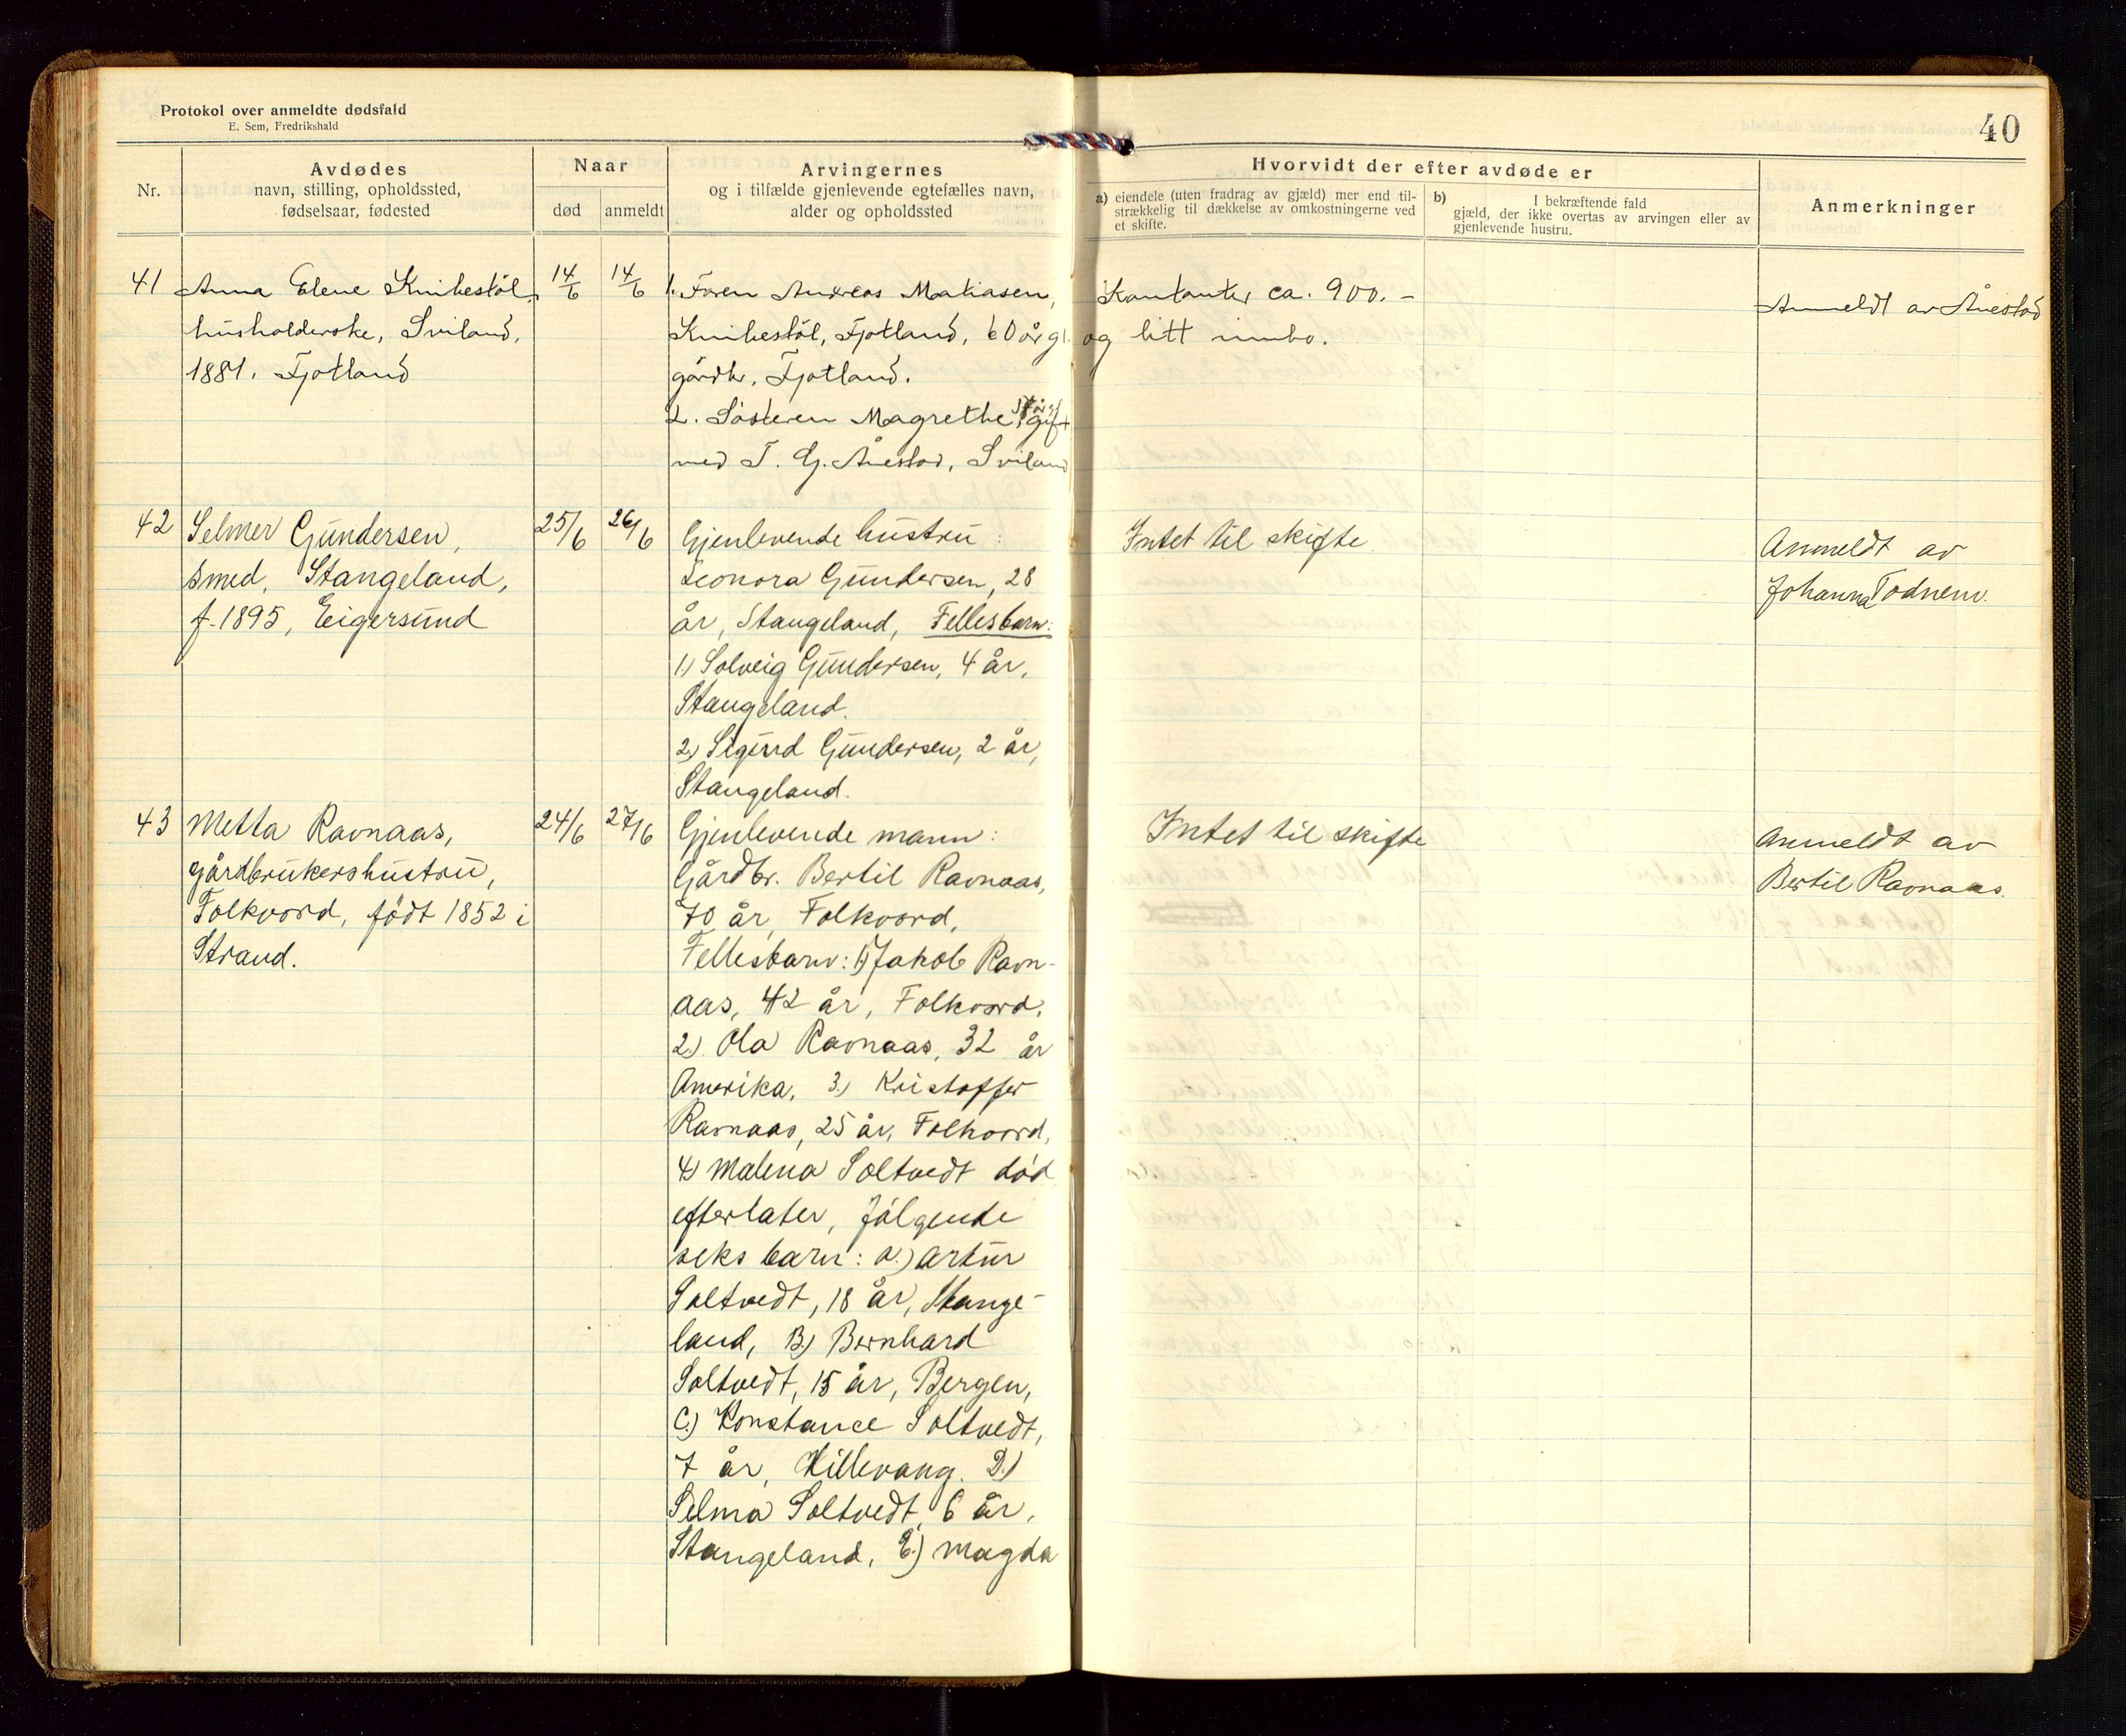 Protokol over anmeldte dødsfald
E. Sem, Fredrikshald
40
Nr.
Avdødes
navn, stilling, opholdssted,
fødselsaar, fødested
Naar
død
anmeldt
Arvingernes
og i tilfælde gjenlevende egtefælles navn,
alder og opholdssted
Hvorvidt der efter avdøde er
a) eiendele (uten fradrag av gjæld) mer end til-
strækkelig til dækkelse av omkostningerne ved
et skifte.
b) I bekræftende fald
gjæld, der ikke overtas av arvingen eller av
gjenlevende hustru.
Anmerkninger
41
Anna Elene Knibestöl,
husholderske, Sviland,
1881. Fjotland
14/6
14/6
1. Faren Andreas Matiasen,
Knibestöl, Fjotland, 60 år gl.
gårdbr, Fjotland.
2. Sösteren Magrethe gift
med T. G. Ånestad, Sviland
Kontanter ca. 900.-
og litt innbo.
Anmeldt av Ånestad
42
Selmer Gundersen,
smed, Stangeland,
f. 1895, Eigersund
25/6
26/6
Gjenlevende hustru:
Leonora Gundersen, 28
år, Stangeland, Fellesbarn:
1) Solveig Gundersen, 4 år,
Stangeland.
2) Sigurd Gundersen, 2 år,
Stangeland.
Intet til skifte
Anmeldt av
Johanna Todnem.
43
Metta Ravnaas,
gårdbrukershustru,
Folkvord, födt 1852 i
Strand.
24/6
27/6
Gjenlevende mann:
Gårdbr. Bertil Ravnaas,
70 år, Folkvord,
Fellesbarn: 1) Jakob Ravn-
aas, 42 år, Folkvord,
2) Ola Ravnaas, 32 år
Amerika, 3.) Kristoffer
Ravnaas, 25 år, Folkvord,
4) Malena Soltvedt död
efterlater, fölgende
seks barn: a.) Artur
Soltvedt, 18 år, Stange-
land, B) Bernhard
Soltvedt, 15 år, Bergen,
C.) Konstance Soltvedt,
7 år, Hillevang. D.)
Selma Soltvedt, 6 år,
Stangeland, E.) Magda
Intet til skifte
Anmeldt av
Bertil Ravnaas.